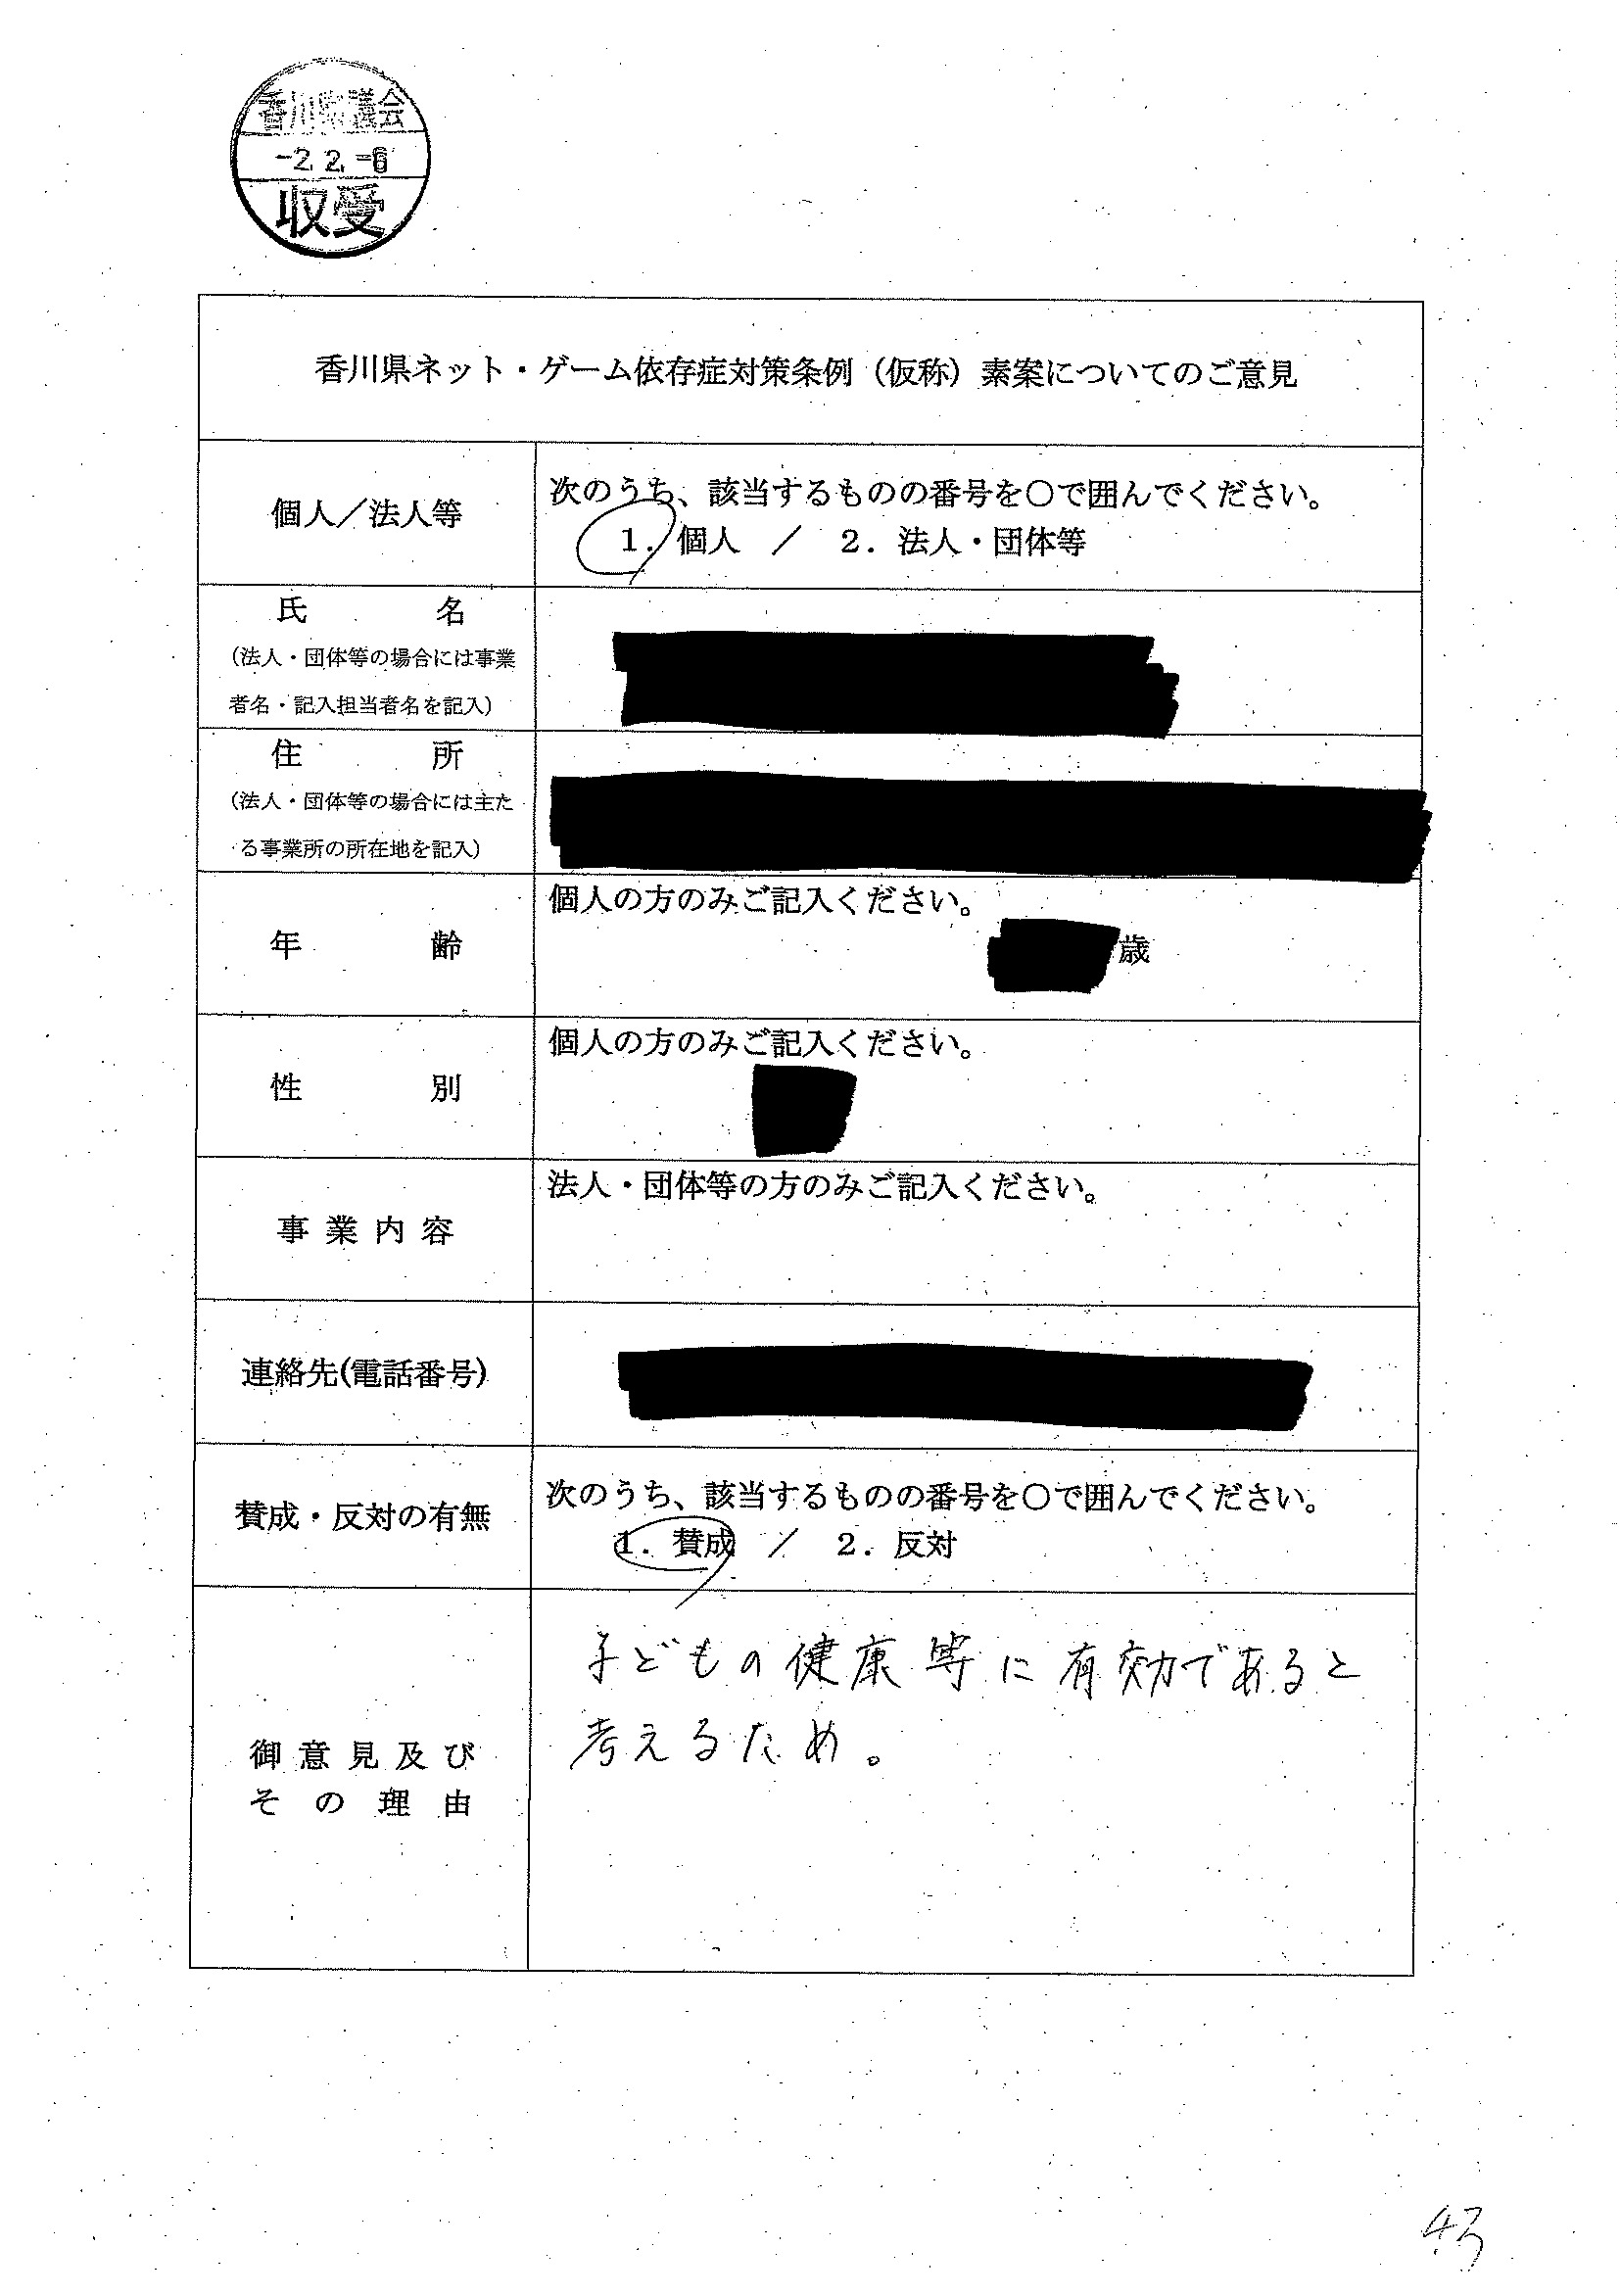 香川県議会
-2. 2. -6
収受
香川県ネット・ゲーム依存症対策条例（仮称）素案についてのご意見
個人／法人等
次のうち、該当するものの番号を○で囲んでください。
１．個人　／　２．法人・団体等
氏　名
（法人・団体等の場合には事業
者名・記入担当者名を記入）
住　所
（法人・団体等の場合には主た
る事業所の所在地を記入）
年　齢
個人の方のみご記入ください。
歳
性　別
個人の方のみご記入ください。
事業内容
法人・団体等の方のみご記入ください。
連絡先(電話番号)
賛成・反対の有無
次のうち、該当するものの番号を○で囲んでください。
１．賛成　／　２．反対
御意見及び
その理由
子どもの健康等に有効であると
考えるため。
43